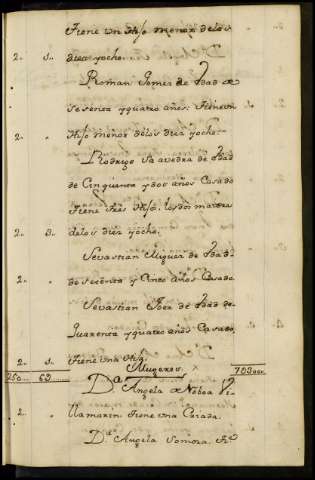 Tiene un Hijo menor delos
2. 1. diez yocho.
Roman Gomes de Edad de
sesenta yquatro años. tiene un
2. 1. Hijo menor delos diez yocho.
Rodrigo Saavedra de Edad
de Cinquenta ydos años Casado
tiene tres Hijos los dos maiores
2. 3. delos diez yocho.
Sevastian Miguez de Edad
2. de sesenta y Cinco años Casado
Sevastian de Edad de
Quarenta yquatro años Casado,
2. 1. tiene una Hija.
Mugeres
250 63 703
Da. Angela de Noboa
2. tiene una Casada.
Da. Angela